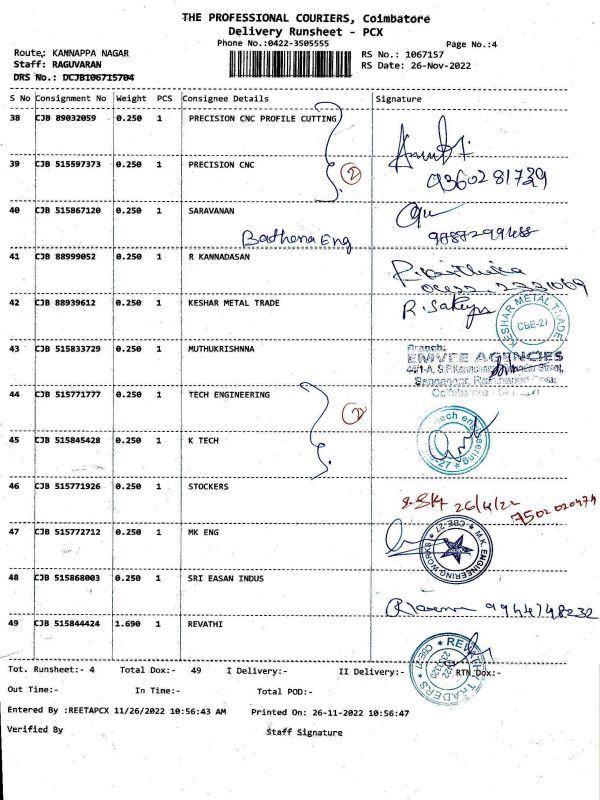 THE PROFESSIONAL COURIERS, Coimbatore
Delivery Runsheet - PCX
Phone No.:0422-3505555
Page No.:4
Route: KANNAPPA NAGAR
RS No.: 1067157
Staff: RAGUVARAN
RS Date: 26-Nov-2022
DRS No.: DCJB106715704
S No Consignment No Weight PCS Consignee Details Signature
38 CJB 89032059 0.250 1 PRECISION CNC PROFILE CUTTING
39 CJB 515597373 0.250 1 PRECISION CNC
2
9360281739
40 CJB 515867120 0.250 1 SARAVANAN
Bathena Eng
41 CJB 88999052 0.250 1 R KANNADASAN
42 CJB 88939612 0.250 1 KESHAR METAL TRADE
KESHAR METAL TRADE
CBE-27
43 CJB 515833729 0.250 1 MUTHUKRISHNNA
Branch:
EMVEE AGENCIES
44 CJB 515771777 0.250 1 TECH ENGINEERING
45 CJB 515845428 0.250 1 K TECH
46 CJB 515771926 0.250 1 STOCKERS
7502020474
47 CJB 515772712 0.250 1 MK ENG
M.K. ENGINEERING WORKS
CBE-27
48 CJB 515868003 0.250 1 SRI EASAN INDUS
9944748232
49 CJB 515844424 1.690 1 REVATHI
Tot. Runsheet:- 4 Total Dox:- 49 I Delivery:- II Delivery:- RTN Dox:-
Out Time:- In Time:- Total POD:-
Entered By :REETAPCX 11/26/2022 10:56:43 AM Printed On: 26-11-2022 10:56:47
Verified By Staff Signature